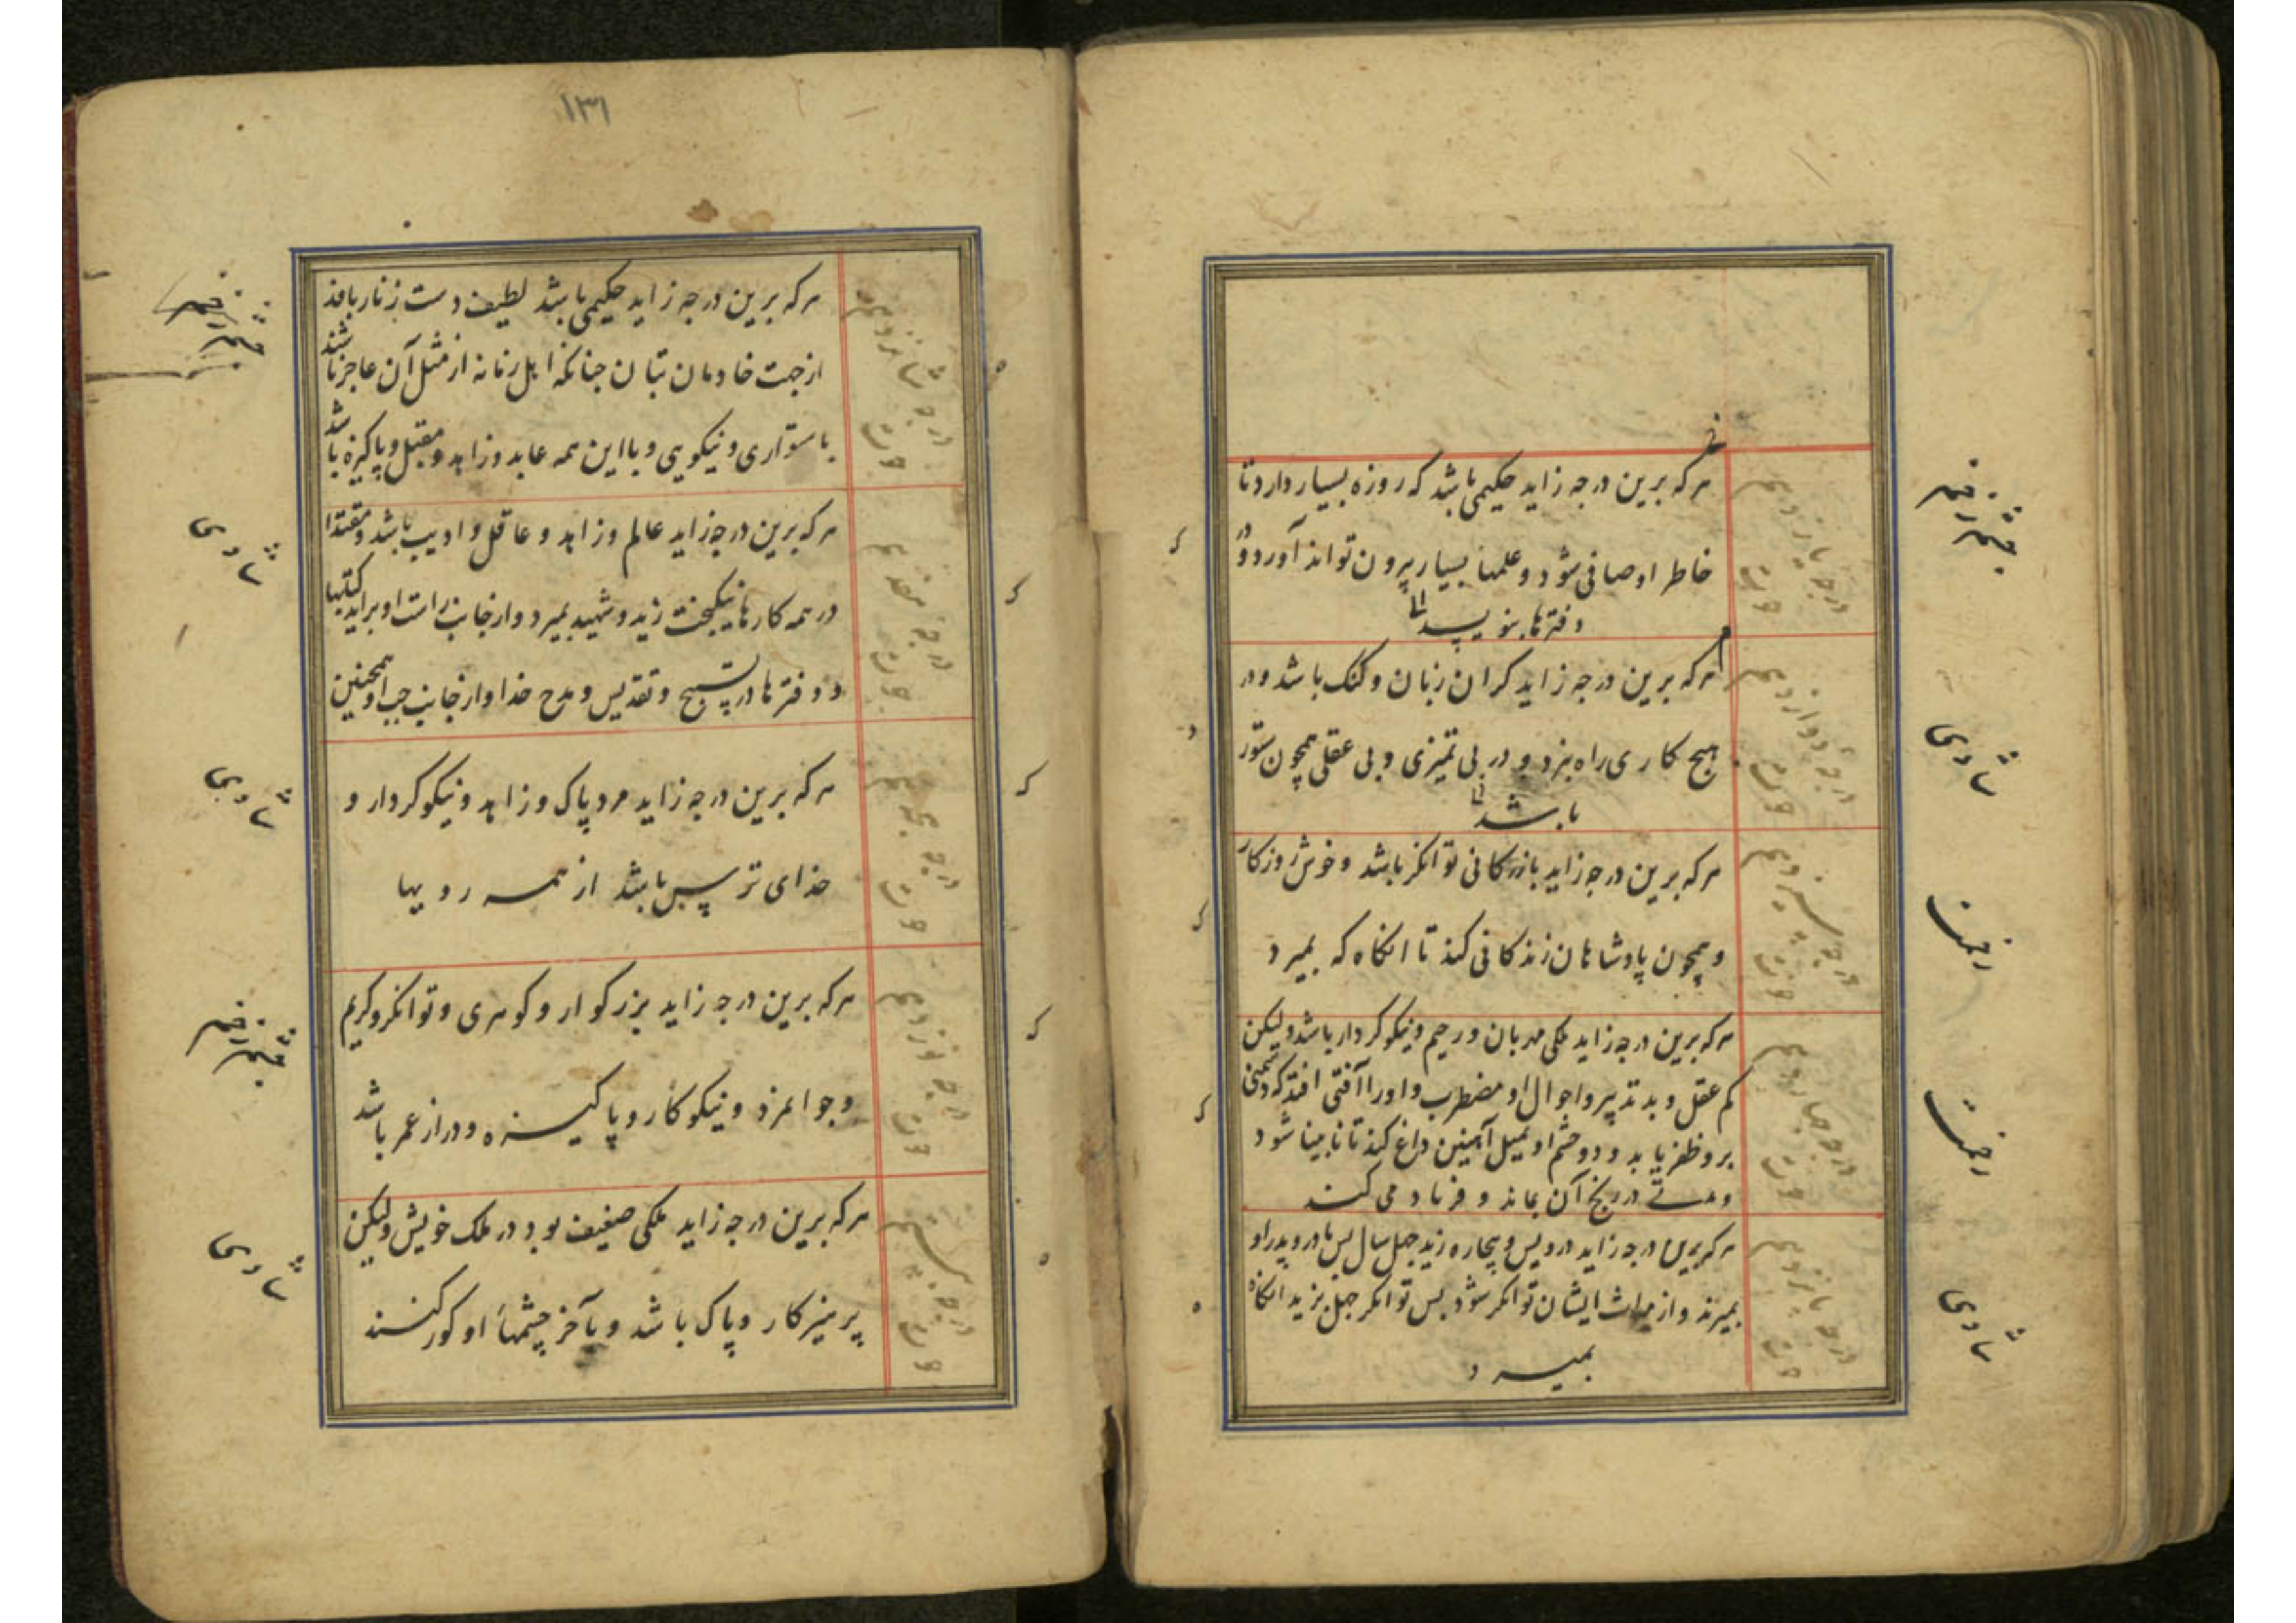 هر که برین درجه زاید حکیمی باشد که روزه بسیار دارد تا
خاطر او صافی شود و علمها بسیار بیرون تواند آورد و
دفترها بنویسد
درجه یازدهم
حوت
هر که برین درجه زاید کران زبان و کنک باشد و در
هیچ کاری راه نبرد و در بی تمیزی و بی عقلی همچون ستور
باشد
درجه دوازدهم
حوت
هر که برین درجه زاید بازرکانی توانکر باشد و خوش روزکار
و همچون پادشاهان زندکانی کند تا انکاه که بمیرد
درجه سیزدهم
حوت
هر که برین درجه زاید ملکی مهربان و رحیم و نیکوکردار باشد ولیکن
کم عقل و بد تدبیر و احوال او مضطرب و او را آفتی افتد که دشمنی
برو ظفر یابد و دو چشم او بمیل آهنین داغ کند تا نابینا شود
و مدتی در رنج آن بماند و فریاد می کند
درجه چهاردهم
حوت
هر که برین درجه زاید درویش و بیچاره زید چهل سال پس مادر و پدر او
بمیرند و از میراث ایشان توانکر شود پس توانکر چهل بزید انکاه
بمیرد
درجه پانزدهم
حوت
۱۳۱
هر که برین درجه زاید حکیمی باشد لطیف دست زنار بافد
از جهت خادمان بتان چنانکه اهل زمانه از مثل آن عاجز باشند
باستواری و نیکویی و با این همه عابد و زاهد و مقبل و پاکیزه باشد
درجه شانزدهم
حوت
هر که برین درجه زاید عالم و زاهد و عاقل و ادیب باشد و مقتدا
در همه کارها نیکبخت زید و شهید بمیرد و از جانب راست او براید کتبها
و دفترها در تسبیح و تقدیس و مدح خدا و از جانب چپ او همچنین
درجه هفدهم
حوت
هر که برین درجه زاید مرد پاک و زاهد و نیکوکردار و
خدای ترس باشد از همه رویها
درجه هجدهم
حوت
هر که برین درجه زاید بزرکوار و کوهری و توانکر و کریم
و جوانمرد و نیکوکار و پاکیزه و دراز عمر باشد
درجه نوزدهم
حوت
هر که برین درجه زاید ملکی ضعیف بود در ملک خویش ولیکن
پرهیزکار و پاک باشد و بآخر چشمهاء او کور کنند
درجه بیستم
حوت